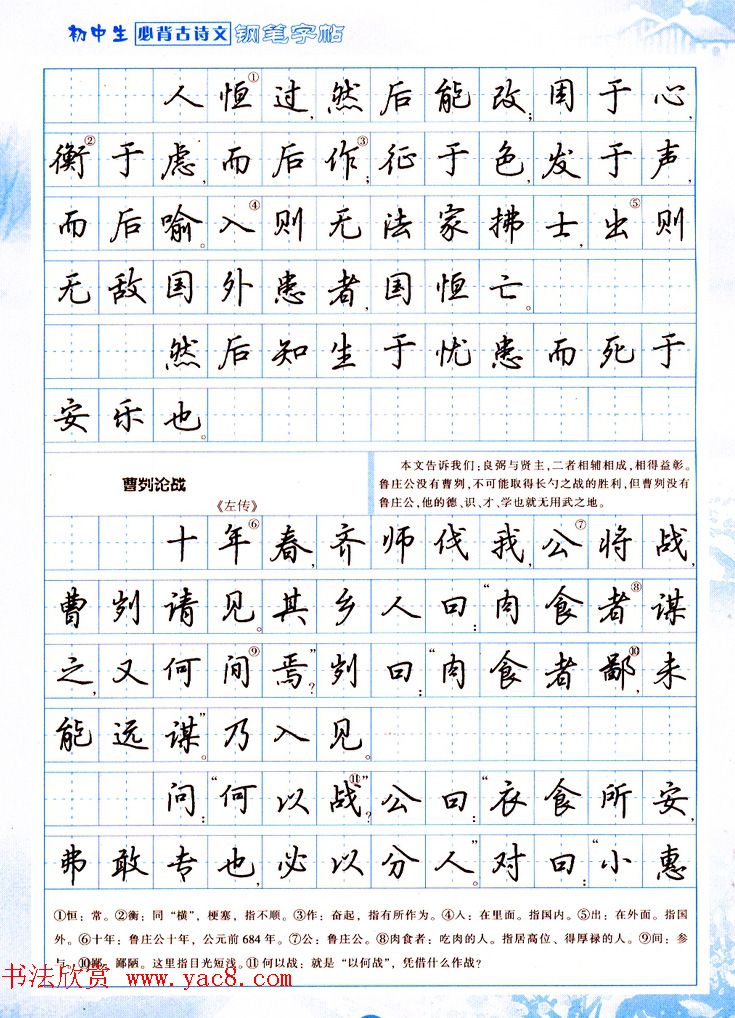 初中生 必背古诗文 钢笔字帖
人恒①过,然后能改;困于心,
衡②于虑,而后作③;征于色,发于声,
而后喻。入④则无法家拂士,出⑤则
无敌国外患者,国恒亡。
然后知生于忧患而死于
安乐也。
曹刿论战
《左传》
本文告诉我们:良弼与贤主,二者相辅相成,相得益彰。
鲁庄公没有曹刿,不可能取得长勺之战的胜利,但曹刿没有
鲁庄公,他的德、识、才、学也就无用武之地。
十年⑥春,齐师伐我,公⑦将战,
曹刿请见。其乡人曰:“肉食者⑧谋
之,又何间⑨焉”?刿曰:“肉食者鄙⑩,未
能远谋。”乃入见。
问:“何以战⑪”?公曰:“衣食所安,
弗敢专也,必以分人。”对曰:“小惠
①恒:常。②衡:同“横”,梗塞,指不顺。③作:奋起,指有所作为。④入:在里面。指国内。⑤出:在外面。指国
外。⑥十年:鲁庄公十年,公元前684年。⑦公:鲁庄公。⑧肉食者:吃肉的人。指居高位、得厚禄的人。⑨间:参
与。⑩鄙:鄙陋。这里指目光短浅。⑪何以战:就是“以何战”,凭借什么作战?
书法欣赏 www.yac8.com